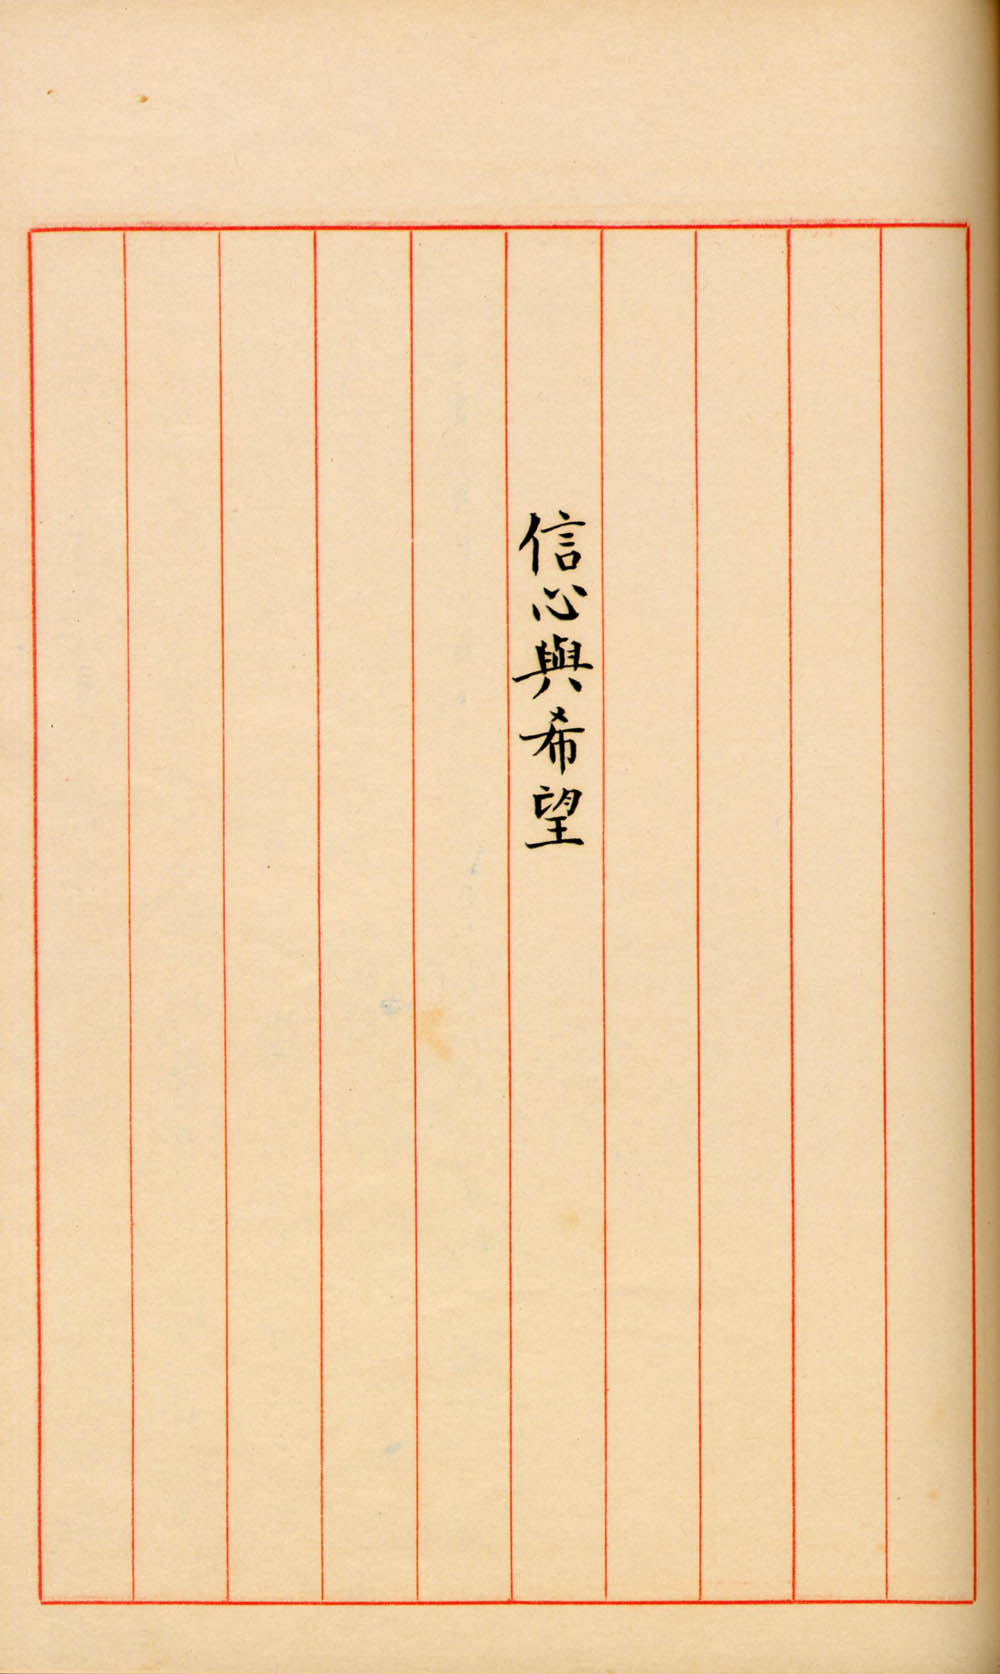 信心與希望